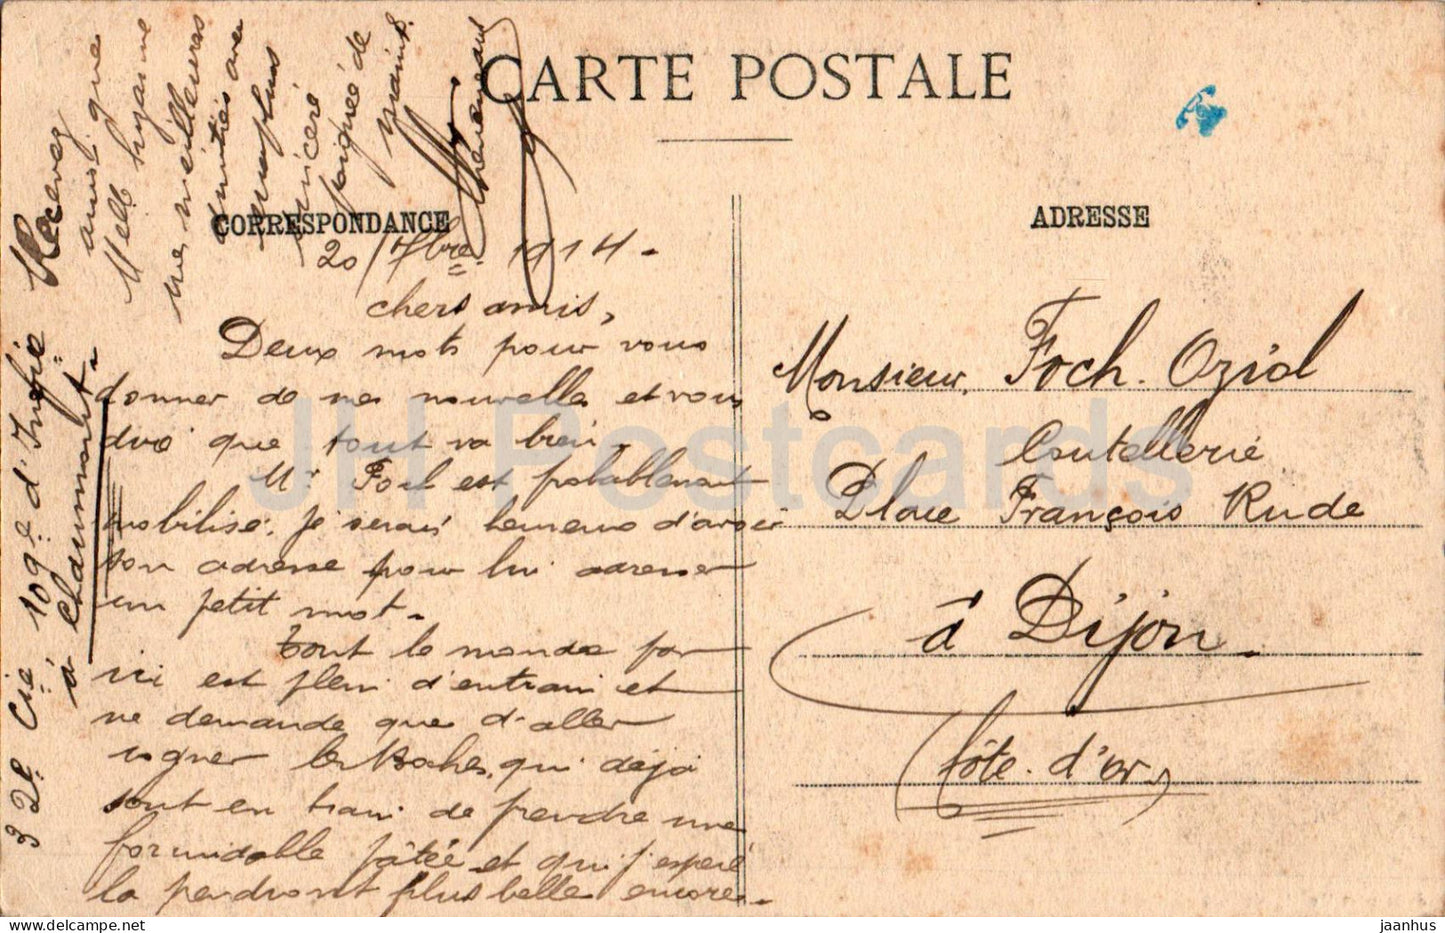 CARTE POSTALE
CORRESPONDANCE
ADRESSE
20/7bre 1914.
chers amis,
Deux mots pour vous
donner de mes nouvelles et vous
dire que tout va bien.
Mr Foch est probablement
mobilisé. Je serais heureux d'avoir
son adresse pour lui adresser
un petit mot.
Tout le monde par
ici est plein d'entrain et
ne demande que d'aller
cogner les Boches, qui déjà
sont en train de prendre une
formidable pâtée et qui j'espère
la prendront plus belle encore.
Recevez
amis que
Melle Suzanne
mes meilleures
amitiés avec
ma plus
sincère
poignée de
mains.
32e Cie 109e d'Infie
à Chaumont.
Monsieur Foch. Oziol
Coutellerie
Place François Rude
à Dijon.
(Côte-d'or)
JH Postcards
delcampe.net
jaanhus